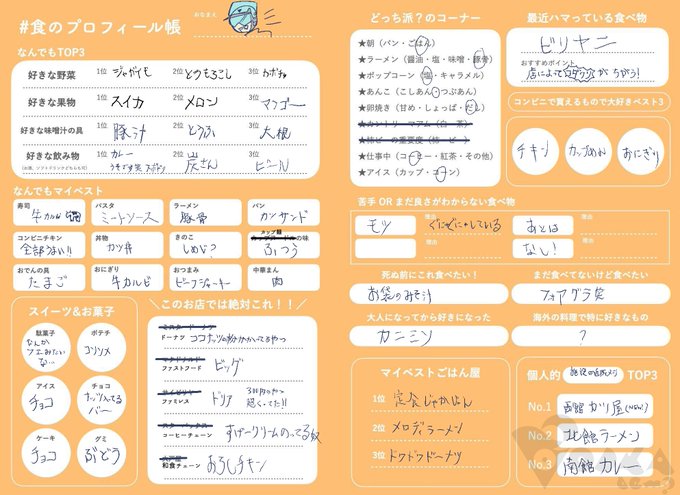 #食のプロフィール帳
おなまえ
なんでもTOP3
好きな野菜 1位 ジャガイモ 2位 とうもろこし 3位 かぼちゃ
好きな果物 1位 スイカ 2位 メロン 3位 マンゴー
好きな味噌汁の具 1位 豚汁 2位 とうふ 3位 大根
好きな飲み物 1位 カレー 2位 炭さん 3位 ビール
(お酒、ソフトドリンクどちらも可)
なんでもマイベスト
寿司 牛カルビ
パスタ ミートソース
ラーメン 豚骨
パン カツサンド
コンビニチキン 全部うまい!!
丼物 カツ丼
きのこ しめじ?
カップ麺の味 ふつう
おでんの具 たまご
おにぎり 牛カルビ
おつまみ ビーフジャーキー
中華まん 肉
スイーツ&お菓子
駄菓子
ポテチ コンソメ
アイス チョコ
チョコ ナッツ入ってるバー
ケーキ チョコ
グミ ぶどう
＼このお店では絶対これ！！／
ミスタードーナツ
ドーナツ ココナッツの粉がかかってるやつ
マクドナルド
ファストフード ビッグ
サイゼリヤ
ファミレス ドリア
スターバックス
コーヒーチェーン すげークリームのってる奴
大戸屋
和食チェーン おろしチキン
どっち派？のコーナー
★朝（パン・ごはん）
★ラーメン（醤油・塩・味噌・豚骨）
★ポップコーン（塩・キャラメル）
★あんこ（こしあん・つぶあん）
★卵焼き（甘め・しょっぱ・だし）
★カントリーマアム（白・茶）
★柿ピーの重要度（柿・ピー）
★仕事中（コーヒー・紅茶・その他）
★アイス（カップ・コーン）
最近ハマっている食べ物
ビリヤニ
おすすめポイント
店によって がちがう!
コンビニで買えるもので大好きベスト3
チキン
カップめん
おにぎり
苦手 OR まだ良さがわからない食べ物
モツ 理由 ぐにぐにゃしている
あとは 理由
理由
なし! 理由
死ぬ前にこれ食べたい！
お袋のみそ汁
まだ食べてないけど食べたい
フォアグラ笑
大人になってから好きになった
カニミソ
海外の料理で特に好きなもの
?
マイベストごはん屋
1位 定食じゃがはん
2位 メロディラーメン
3位 ドワドワドーナツ
個人的 TOP3
No.1 西館カツ屋(NEW!)
No.2 北館ラーメン
No.3 南館カレー